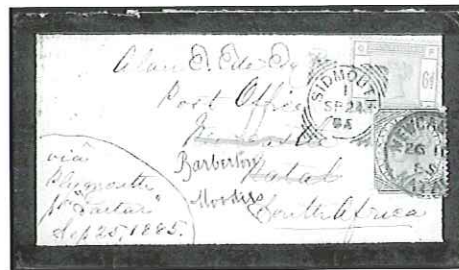 Alan E. Ede Esq
Post Office
Newcastle
Barberton
Natal
Moodies
South Africa
via
Plymouth
pr "Tartar"
Sep 25, 1885.
SIDMOUTH
1
SP 24
85
6d
NEWCAS
26